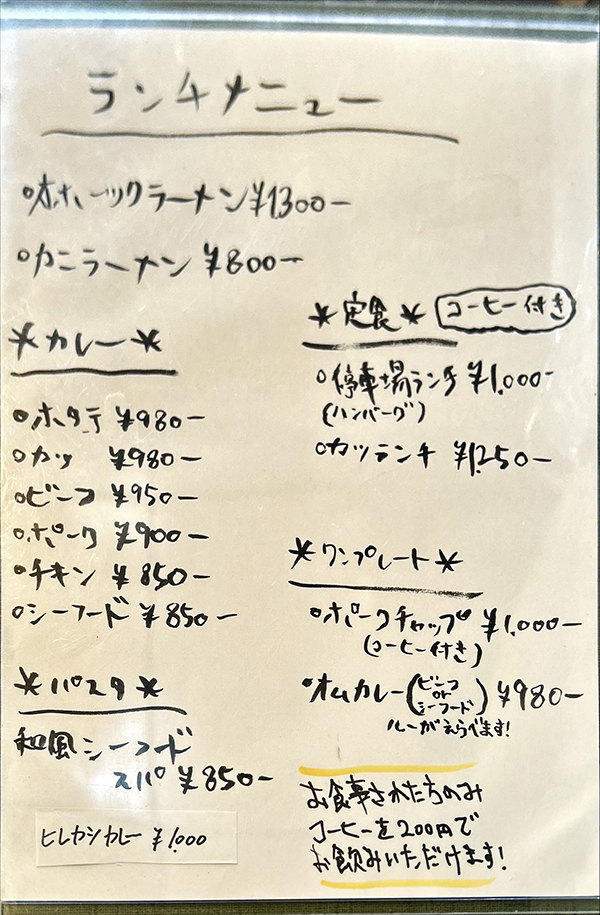 ランチメニュー
○オホーツクラーメン ¥1300ー
○カニラーメン ¥800ー
＊カレー＊
○ホタテ ¥980ー
○カツ ¥980ー
○ビーフ ¥950ー
○ポーク ¥900ー
○チキン ¥850ー
○シーフード ¥850ー
＊パスタ＊
和風シーフード
スパ ¥850ー
ヒレカツカレー ¥1,000
＊定食＊ コーヒー付き
○停車場ランチ ¥1,000ー
(ハンバーグ)
○カツランチ ¥1,250ー
＊ワンプレート＊
○ポークチャップ ¥1,000ー
(コーヒー付き)
○オムカレー(ビーフ or シーフード) ¥980ー
ルーがえらべます!
お食事された方のみ
コーヒーを200円で
お飲みいただけます!